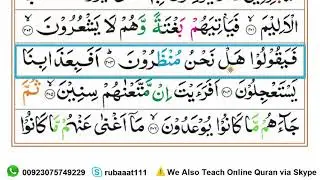 الْاَلِیْمَ ۟ۙ فَیَاْتِیَهُمْ بَغْتَةً وَّهُمْ لَا یَشْعُرُوْنَ ۟ۙ
فَیَقُوْلُوْا هَلْ نَحْنُ مُنْظَرُوْنَ ۟ؕ اَفَبِعَذَابِنَا
یَسْتَعْجِلُوْنَ ۟ اَفَرَءَیْتَ اِنْ مَّتَّعْنٰهُمْ سِنِیْنَ ۟ۙ ثُمَّ
جَآءَهُمْ مَّا كَانُوْا یُوْعَدُوْنَ ۟ۙ مَاۤ اَغْنٰی عَنْهُمْ مَّا كَانُوْا
00923075749229 rubaat111 ⚠ We Also Teach Online Quran via Skype